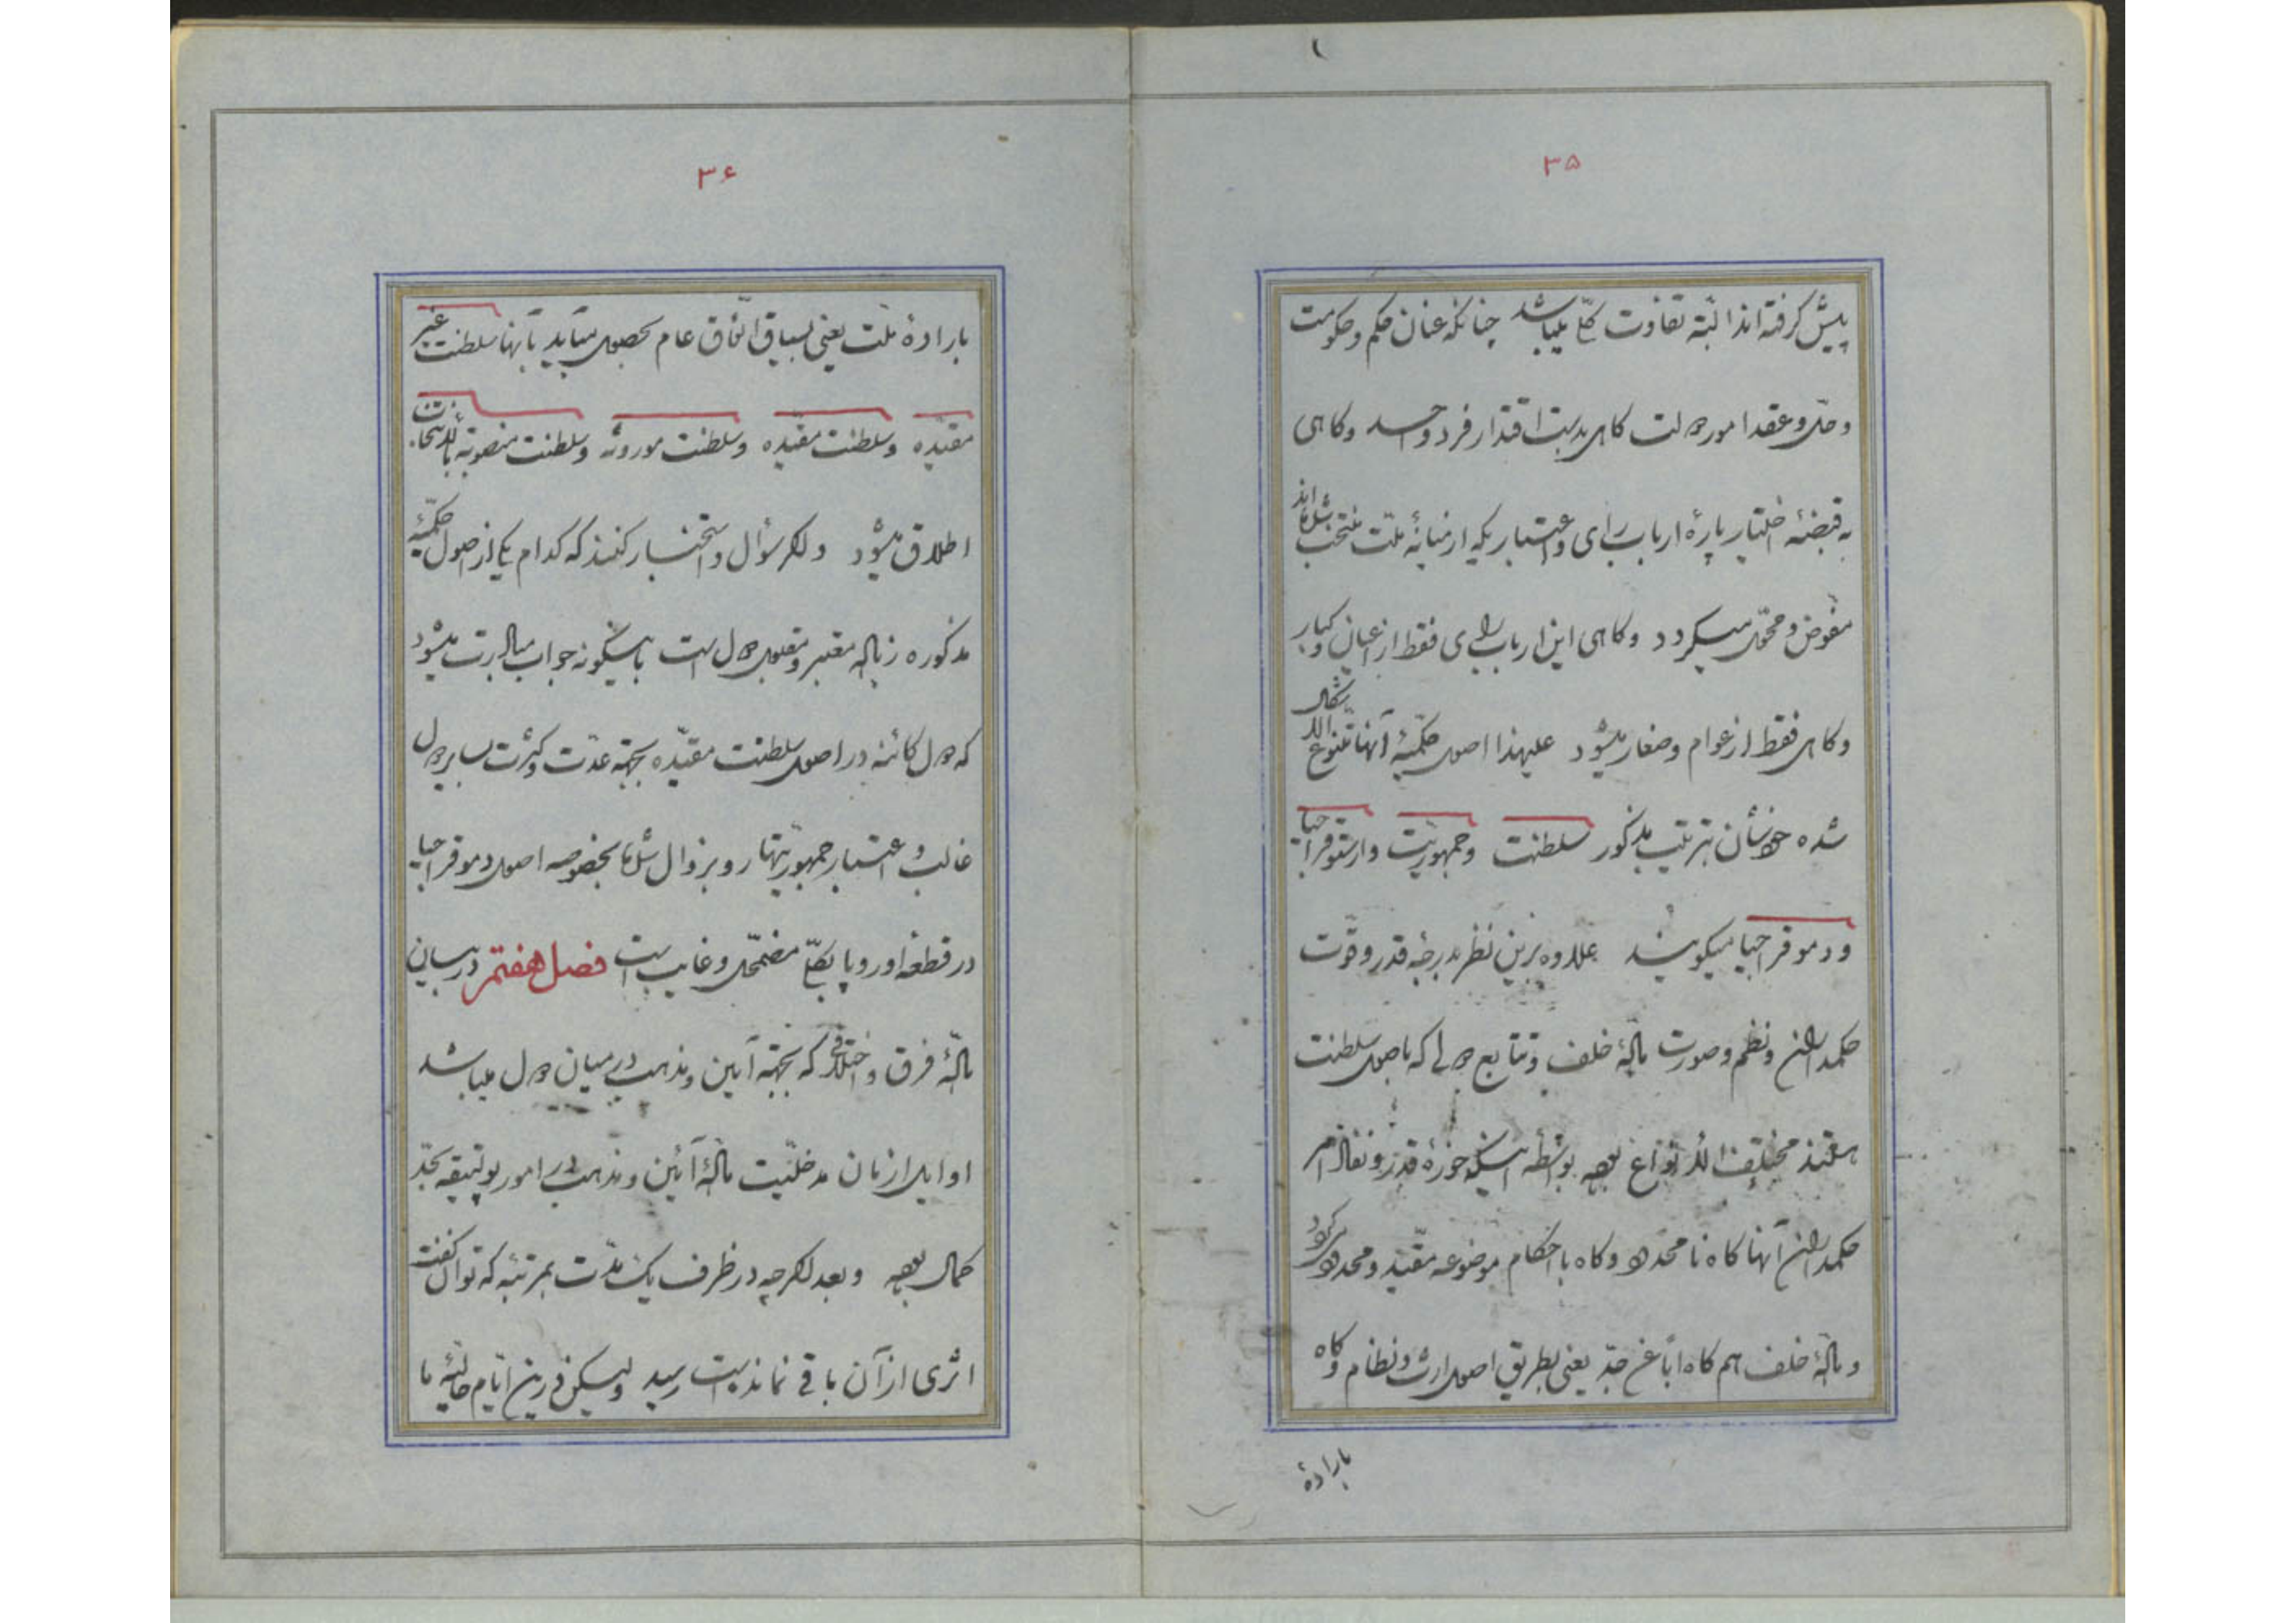 ۳۵
پیش گرفته‌اند البته تفاوت کلی میباشد چنانکه عنان حکم و حکومت
و حل و عقد امور دولت کاهی بدست اقتدار فرد واحد و کاهی
به قبضهٔ اختیار پارهٔ ارباب رای و اعتباریکه از میانهٔ ملت منتخب شده‌اند
مفوض و محول میکردد و کاهی این ارباب رای فقط از اعیان و کبار
و کاهی فقط از عوام و صغار میشود علیهذا اصول حکمیهٔ آنها متنوع الاشکال
شده عنوانشان بترتیب مذکور سلطنت و جمهوریت و ارستوقراحیا
و دموقراحیا میکویند علاوه برین نظر بدرجهٔ قدر و قوت
حکمداران و نظم و صورت مسألهٔ خلف و تتابع دولی که باصول سلطنت
هستند مختلف الانواع بوده بواسطه اینکه حوزهٔ قدر و نفاذ امر
حکمداران آنها کاه نامحدود و کاه باحکام موضوعه مقید و محدود
و مسألهٔ خلف هم کاه اباً عن جد یعنی بطریق اصول ارث و نظام و کاه
بارادهٔ
۳۶
بارادهٔ ملت یعنی بسیاق اتفاق عام بحصول میآید بآنها سلطنت غیر
مقیده و سلطنت مقیده و سلطنت موروثه و سلطنت منصوبه بالانتخاب
اطلاق میشود و اکر سؤال و استخبار کنند که کدام یکی از اصول حکمیهٔ
مذکوره زیاده معتبر و مقبول دول است باینکونه جواب مبادرت میشود
که دول کائنه در اصول سلطنت مقیده بجهة عدت و کثرت بسایر دول
غالب و اعتبار جمهوریتها رو بزوال شده بخصوصه اصول دموقراحیا
در قطعهٔ اوروپا بکلی مضمحل و غایب است فصل هفتم در بیان
مسألهٔ فرق و اختلافی که بجهة آیین و مذهب در میان دول میباشد
اوایل ازمان مدخلیت مسألهٔ آئین و مذهب در امور پولتیقه بحد
کمال بوده و بعد اکرچه در ظرف یک مدت بمرتبهٔ که توان گفت
اثری از آن باقی نمانده است رسید ولیکن درین ایام حالیهٔ ما